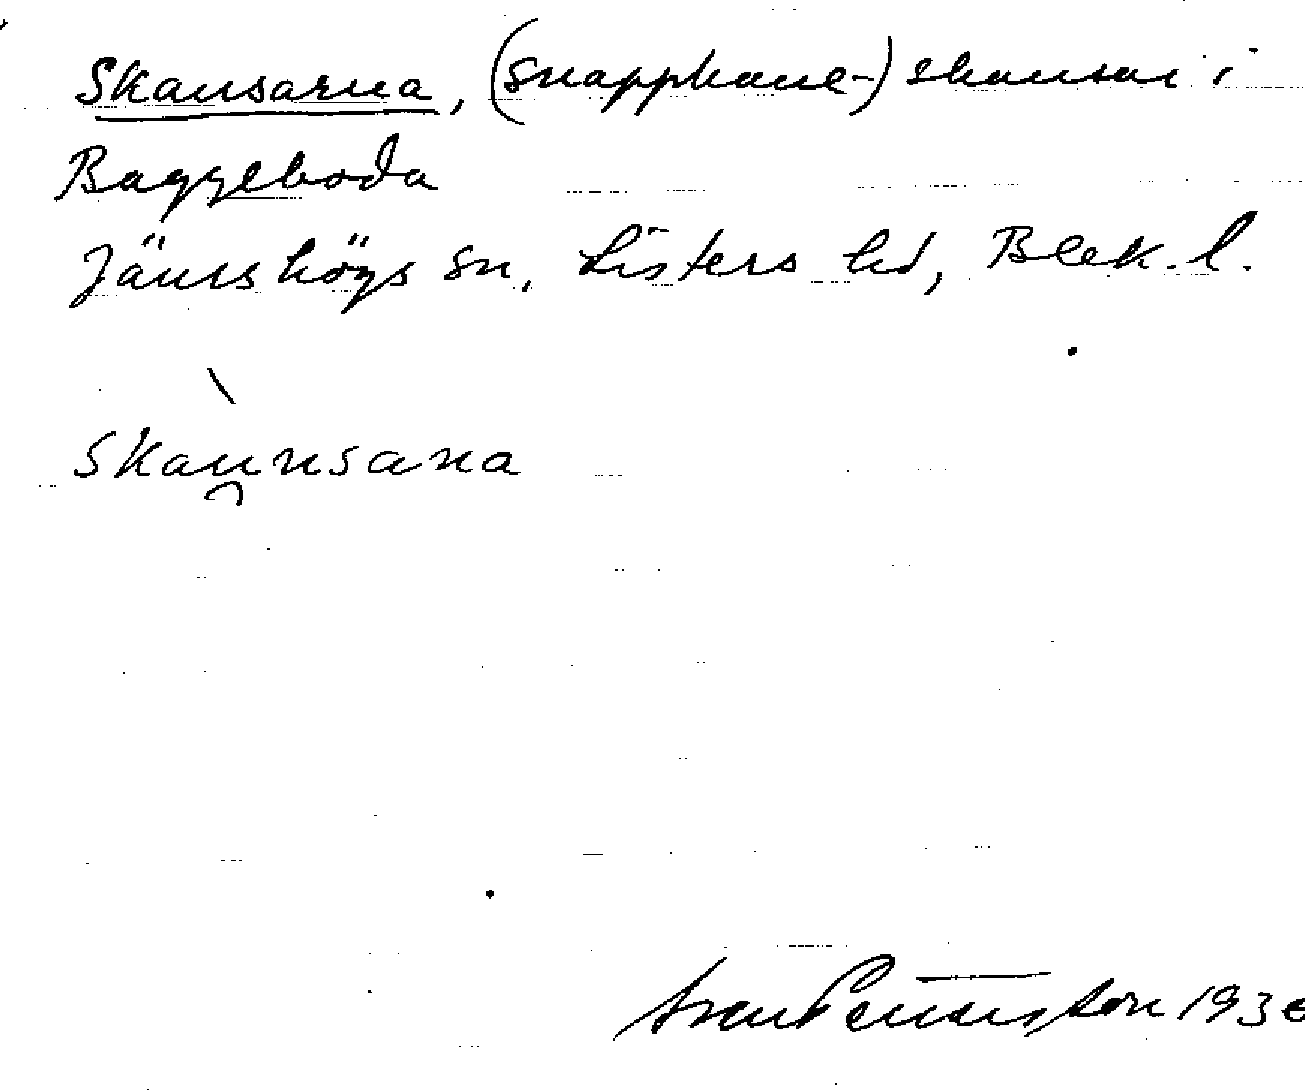 Skansarna, (snapphane-) skansar i
Baggeboda
Jämshögs sn, Listers hd, Blek. l.
Skaunsana
Sven Benson 1936